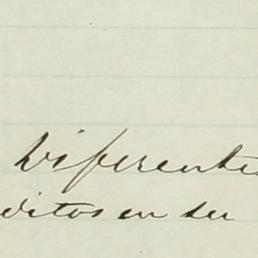 Diferentes
ditos en su